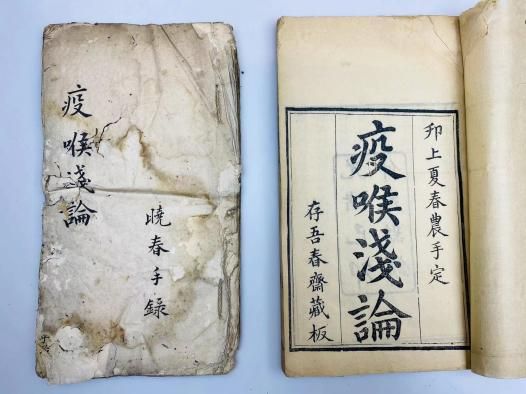 疫喉淺論
曉春手錄
邗上夏春農手定
疫喉淺論
存吾春齋藏板